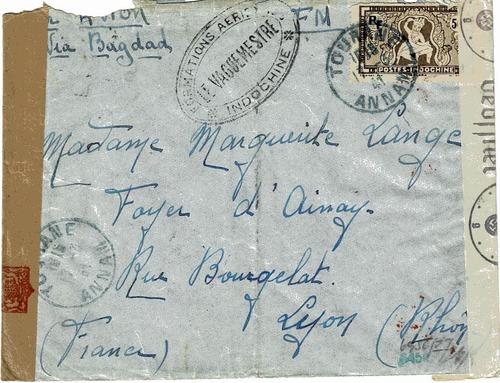 Par Avion
Via Bagdad
FORMATIONS AERIENNES
LE VAGUEMESTRE
INDOCHINE
FM
TOURANE
ANNAM
RF
5
POSTES-INDOCHINE
Madame Marguerite Lange
Foyer d'Ainay.
Rue Bourgelat.
Lyon (Rhône
(France)
TOURANE
ANNAM
Geöffnet